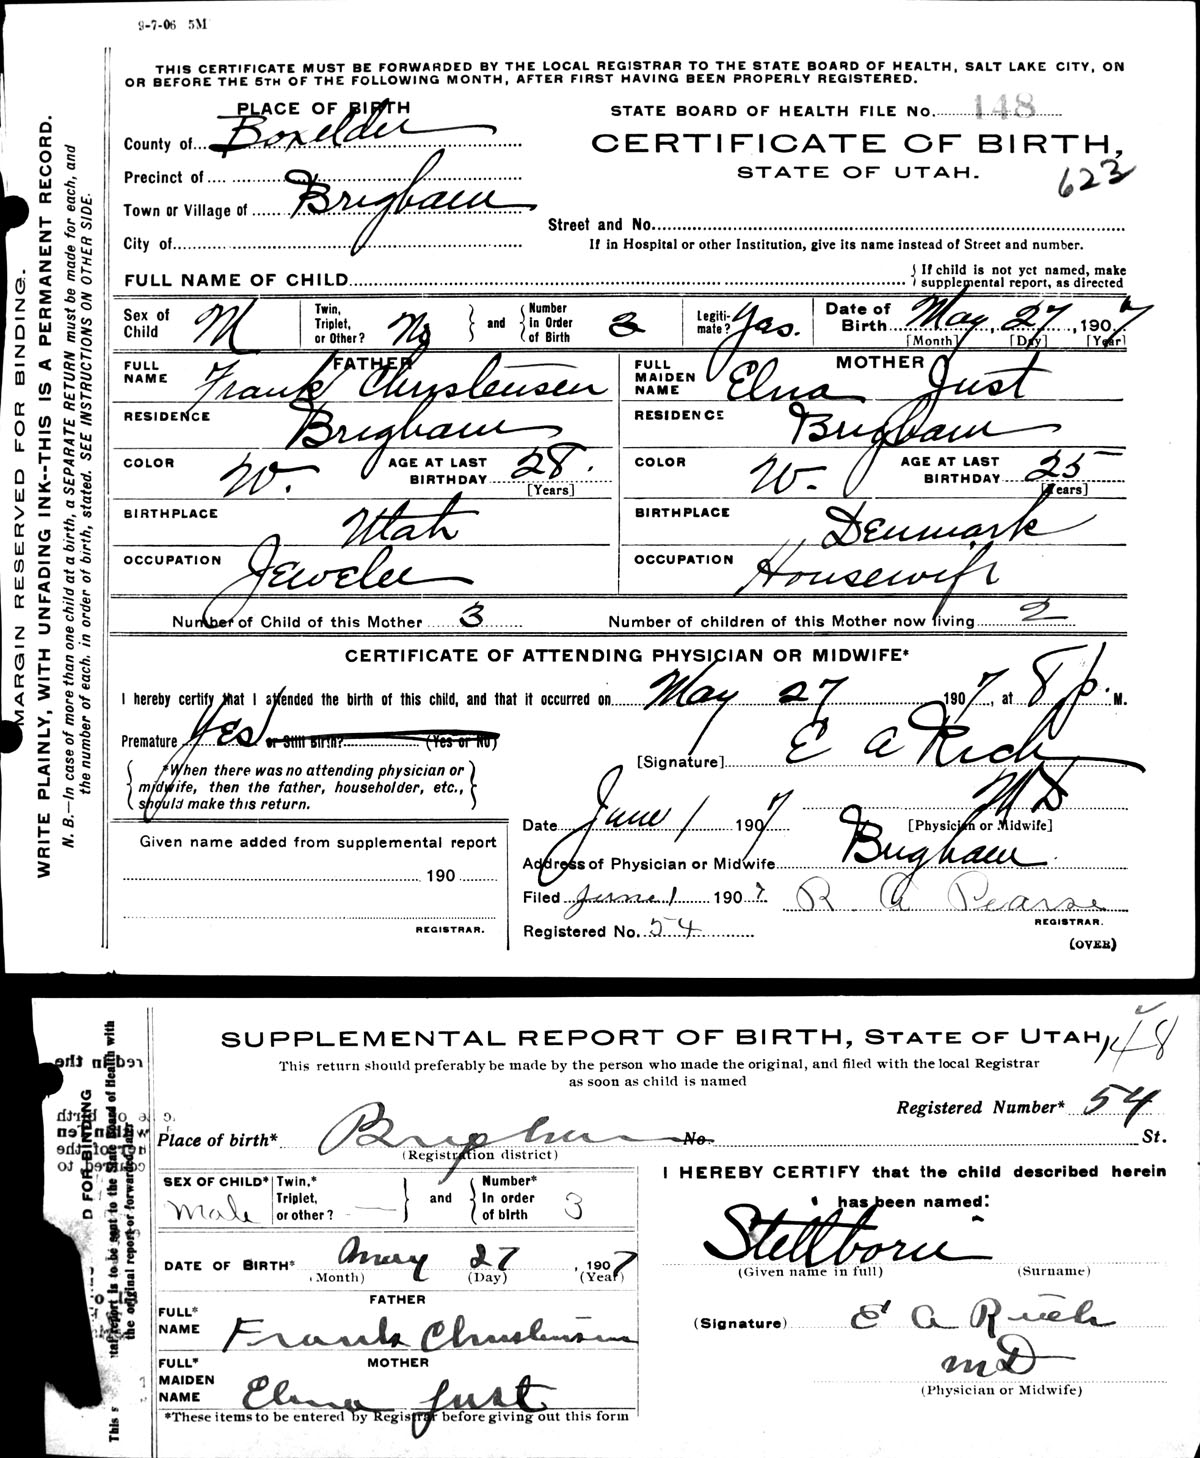 9-7-06 5M
THIS CERTIFICATE MUST BE FORWARDED BY THE LOCAL REGISTRAR TO THE STATE BOARD OF HEALTH, SALT LAKE CITY, ON
OR BEFORE THE 5TH OF THE FOLLOWING MONTH, AFTER FIRST HAVING BEEN PROPERLY REGISTERED.
MARGIN RESERVED FOR BINDING.
WRITE PLAINLY, WITH UNFADING INK--THIS IS A PERMANENT RECORD.
N. B.—In case of more than one child at a birth, a SEPARATE RETURN must be made for each, and
the number of each, in order of birth, stated. SEE INSTRUCTIONS ON OTHER SIDE.
PLACE OF BIRTH
County of Boxelder
Precinct of
Town or Village of Brigham
City of
STATE BOARD OF HEALTH FILE No. 148
CERTIFICATE OF BIRTH,
STATE OF UTAH.
623
Street and No.
If in Hospital or other Institution, give its name instead of Street and number.
FULL NAME OF CHILD
{ If child is not yet named, make
supplemental report, as directed
Sex of Child M
Twin, Triplet, or Other? No
and
Number in Order of Birth 3
Legitimate? Yes.
Date of Birth May, 27, 1907
[Month] [Day] [Year]
FATHER
FULL NAME Frank Christensen
MOTHER
FULL MAIDEN NAME Elna Just
RESIDENCE Brigham
RESIDENCE Brigham
COLOR W. AGE AT LAST BIRTHDAY 28. [Years]
COLOR W. AGE AT LAST BIRTHDAY 25 [Years]
BIRTHPLACE Utah
BIRTHPLACE Denmark
OCCUPATION Jeweler
OCCUPATION Housewife
Number of Child of this Mother 3 Number of children of this Mother now living 2
CERTIFICATE OF ATTENDING PHYSICIAN OR MIDWIFE*
I hereby certify that I attended the birth of this child, and that it occurred on May 27 1907, at 8 p. M.
Premature Yes or Still Birth? (Yes or No)
*When there was no attending physician or
midwife, then the father, householder, etc.,
should make this return.
[Signature] E A Rich
M D
[Physician or Midwife]
Date June 1 1907
Address of Physician or Midwife Brigham
Given name added from supplemental report
190
REGISTRAR.
Filed June 1 1907 R A Pearse
REGISTRAR.
Registered No. 54
(OVER)
SUPPLEMENTAL REPORT OF BIRTH, STATE OF UTAH
148
This return should preferably be made by the person who made the original, and filed with the local Registrar
as soon as child is named
Registered Number* 54
Place of birth* Brigham No. St.
(Registration district)
SEX OF CHILD* Male
Twin,* Triplet, or other? —
and
Number* In order of birth 3
I HEREBY CERTIFY that the child described herein
has been named:
Stillborn
(Given name in full) (Surname)
DATE OF BIRTH* May 27, 1907
(Month) (Day) (Year)
FATHER
FULL* NAME Frank Christensen
(Signature) E A Rich
M D
(Physician or Midwife)
MOTHER
FULL* MAIDEN NAME Elna Just
*These items to be entered by Registrar before giving out this form
D FOR BINDING
to be sent to the State Board of Health with
the original report or forwarded later